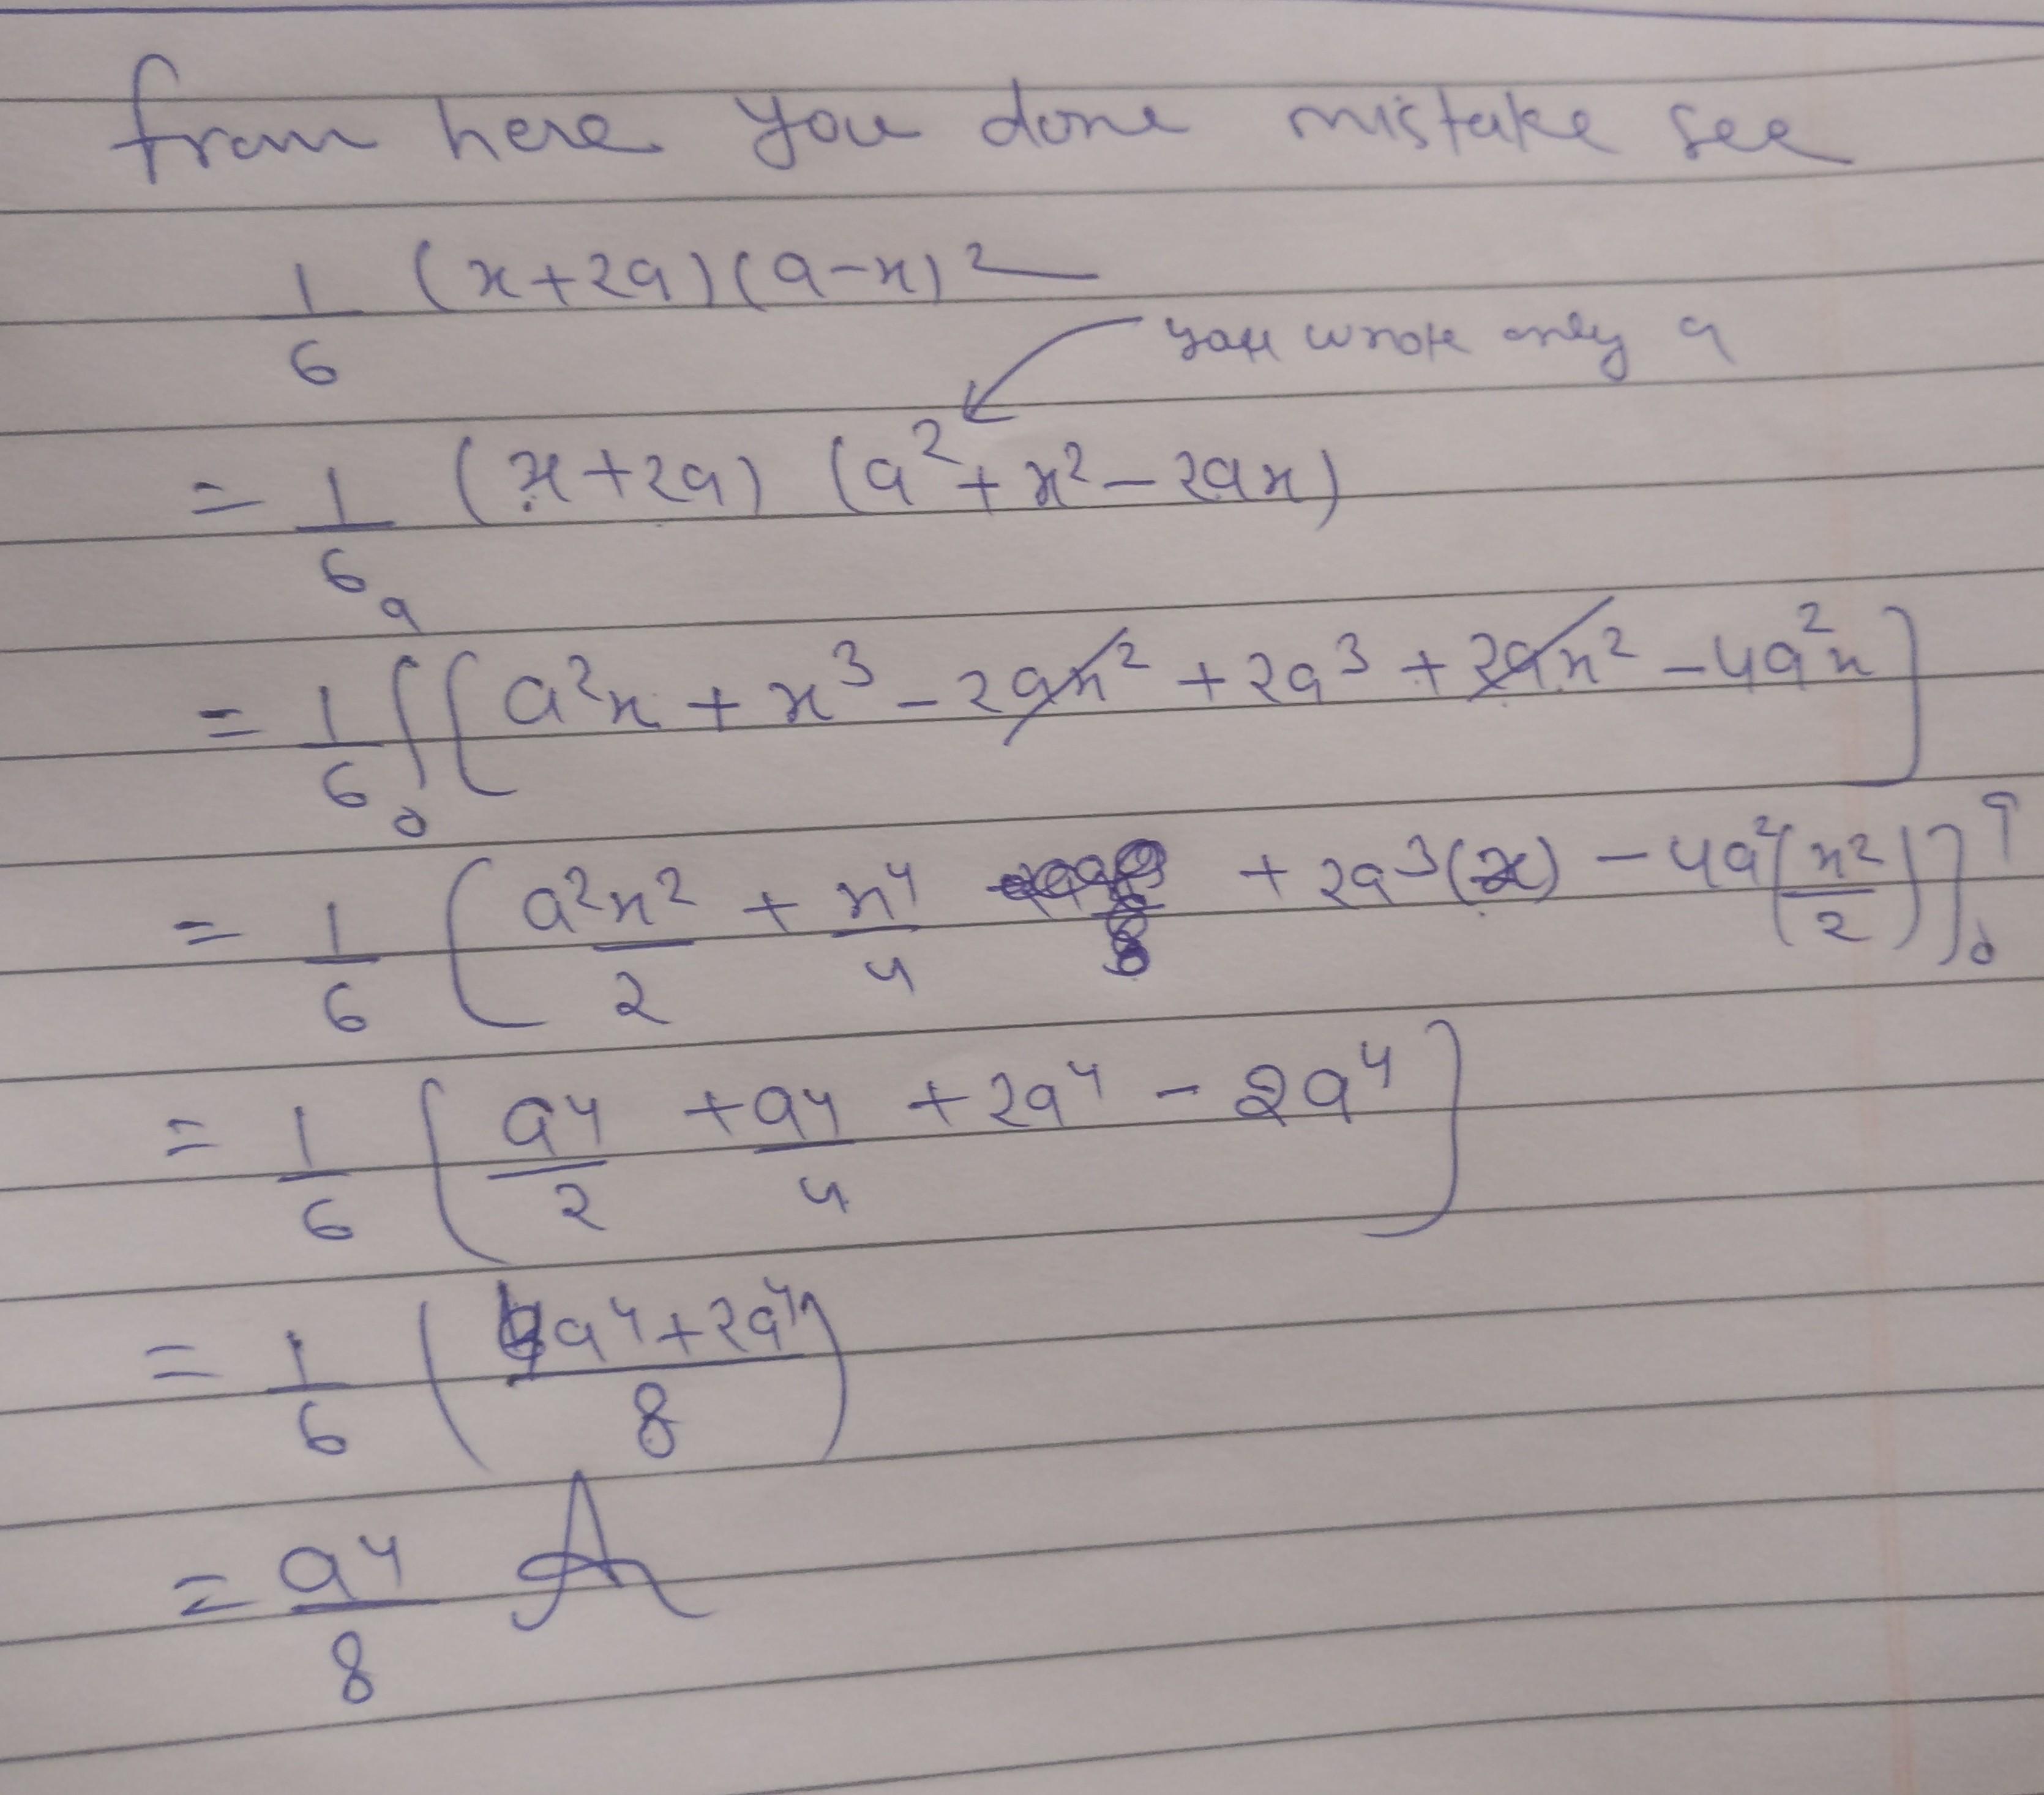 from here you done mistake see
1/6 (x+2a)(a-x)²
you wrote only a
= 1/6 (x+2a) (a²+x²-2ax)
= 1/6 ∫₀ᵃ [a²x + x³ - 2ax² + 2a³ + 2ax² - 4a²x]
= 1/6 [a²x²/2 + x⁴/4 + 2a³(x) - 4a²(x²/2)]₀ᵃ
= 1/6 [a⁴/2 + a⁴/4 + 2a⁴ - 2a⁴]
= 1/6 (4a⁴+2a⁴/8)
= a⁴/8